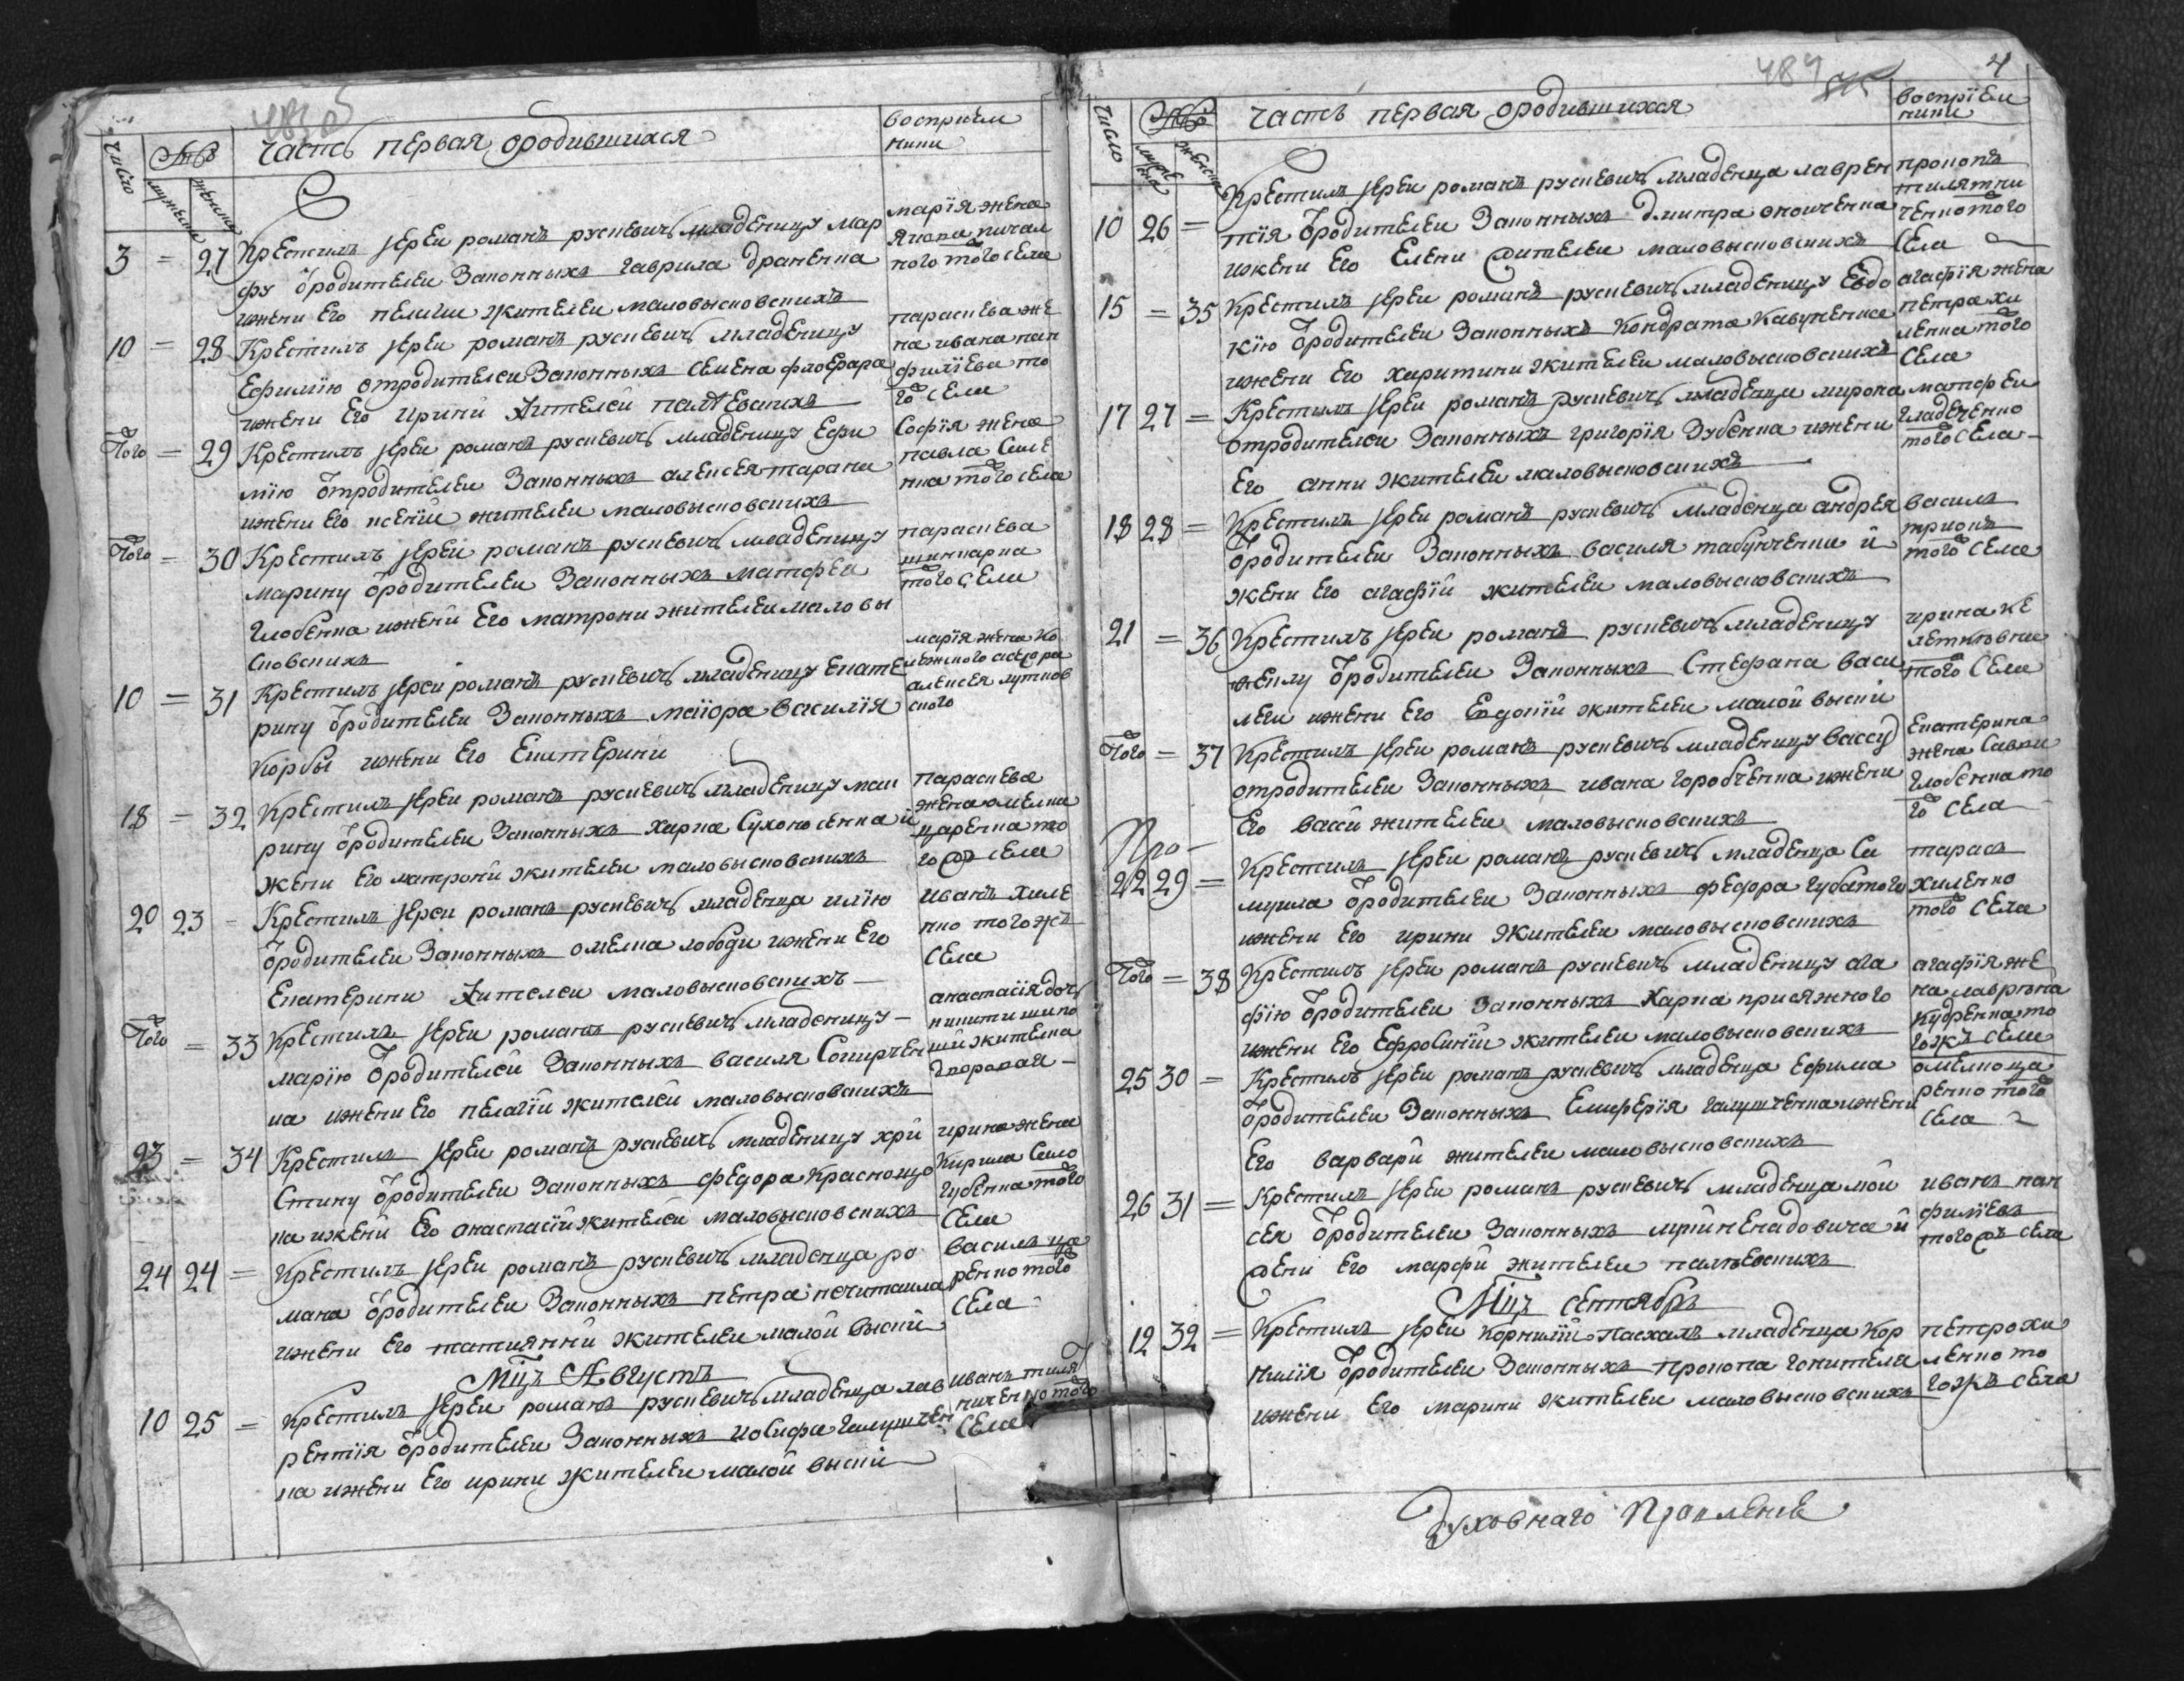 Число
мужеска
женска
часть первая ородившихся
восприем
ники
3 = 27 Крестилъ іерей романъ русkевичъ младеницу мар
фу ѿродителей законныхъ гаврила драненка
ижени его пелагии жителей маловысковскихъ
мария жена
того села
10 = 28 Крестилъ іерей романъ рускевичъ младеницу
Ефимию отродителей законныхъ семена флоєрара
ижени его ирини жителей палѣевскихъ
параскева же
на ивана пан
филіева то
го села
Того = 29 Крестилъ іерей романъ рускевичъ младеницу Ефи
мию ѿтродителей законныхъ алексея тарана
ижени его ксении жителей маловысковскихъ
Софія жена
павла Семе
нка того села
Того = 30 Крестилъ іерей романъ рускевичъ младеницу
марину ѿродителей законныхъ матфея
глобенка ижени его матрони жителей маловы
сковскихъ
параскева
шинкарка
того села
10 = 31 Крестилъ іерей романъ рускевичъ младеницу Екате
рину ѿродителей законныхъ маіора василія
Корбы ижени его Екатерини
марія жена ко
лежского асесора
алексея лутков
ского
18 = 32 Крестилъ іерей романъ рускевичъ младеницу мак
рину ѿродителей законныхъ карпа Сухоносенка и
жени его матрони жителей маловысковскихъ
параскева
жена омелка
царенка то
гожъ села
20 23 - Крестилъ іерей романъ рускевичъ младенца илію
ѿродителей законныхъ омелка лободи ижени его
Екатерини жителей маловысковскихъ
иванъ хиле
нко тогожъ
Села
Того = 33 Крестилъ іерей романъ рускевичъ младеницу
марію ѿродителей законныхъ василя Сокирчен
ка ижени его пелагій жителей маловысковскихъ
анастасія дочь
23 = 34 Крестилъ іерей романъ рускевичъ младеницу хри
стину ѿродителей законныхъ федора Краснощо
ка ижени его анастасіи жителей маловысковскихъ
ирина жена
Кирила Село
губенка того
села
24 24 = Крестилъ іерей романъ рускевичъ младенца ро
мана ѿродителей законныхъ петра нечитаила
ижени его татиянни жителей малой виски
василь ца
ренко того
села
Мцъ Августъ
10 25 = Крестилъ іерей романъ рускевичъ младенца лав
рентія ѿродителей законныхъ иосифа галушчен
ка ижени его ирини жителей малой виски
иванъ тиля
ничен ко того
села
484
4
число
мужеска
женска
часть первая ородившихся
восприем
ники
10 26 = Крестилъ іерей романъ рускевичъ младенца лаврен
тія ѿродителей законныхъ дмитра оноченка
ижени его Елени жителей маловысковскихъ
прокопъ
тилятни
ченко того
села
15 = 35 Крестилъ іерей романъ рускевичъ младеницу Евдо
кію ѿродителей законныхъ Кондрата Кавуненка
ижени его харитини жителей маловысковскихъ
агафія жена
петра хи
ленка того
села
17 27 = Крестилъ іерей романъ рускевичъ младенца мирона
отродителей законныхъ григорія Зубенка ижени
его анни жителей маловысковскихъ
матфей
гладченко
того села
18 28 = Крестилъ іерей романъ рускевичъ младенца андрея
ѿродителей законныхъ василя табунченка и
жени его агафіи жителей маловысковскихъ
василь
того села
21 = 36 Крестилъ іерей романъ рускевичъ младеницу
феклу ѿродителей законныхъ Стефана васи
леги ижени его Евдокіи жителей малой виски
ирина
того села
Того = 37 Крестилъ іерей романъ рускевичъ младеницу Вассу
отродителей законныхъ ивана горобченка ижени
его васси жителей маловысковскихъ
Екатерина
жена Савки
глобенка то
го села
22 29 = Крестилъ іерей романъ рускевичъ младенца Са
муила ѿродителей законныхъ феодора губатого
ижени его ирини жителей маловысковскихъ
тарасъ
хиленко
того села
Того = 38 Крестилъ іерей романъ рускевичъ младеницу ага
фію ѿродителей законныхъ Карпа присяжного
ижени его Ефросиніи жителей маловысковскихъ
агафія же
на лаврѣна
кудренка то
гожъ села
25 30 = Крестилъ іерей романъ рускевичъ младенца Ефима
ѿродителей законныхъ Елиферія галушченка ижени
его варвари жителей маловысковскихъ
омелко ца
ренко того
села
26 31 = Крестилъ іерей романъ рускевичъ младенца мой
сея ѿродителей законныхъ
жени его марфи жителей палѣевскихъ
иванъ пан
филіевъ
тогожъ села
Мцъ Септябръ
12 32 = Крестилъ іерей Корнилій Пасхалъ младенца Кор
нилія ѿродителей законныхъ прокопа гонителя
ижени его марини жителей маловысковскихъ
петро хи
ленко то
гожъ села
духовнаго Правленіе